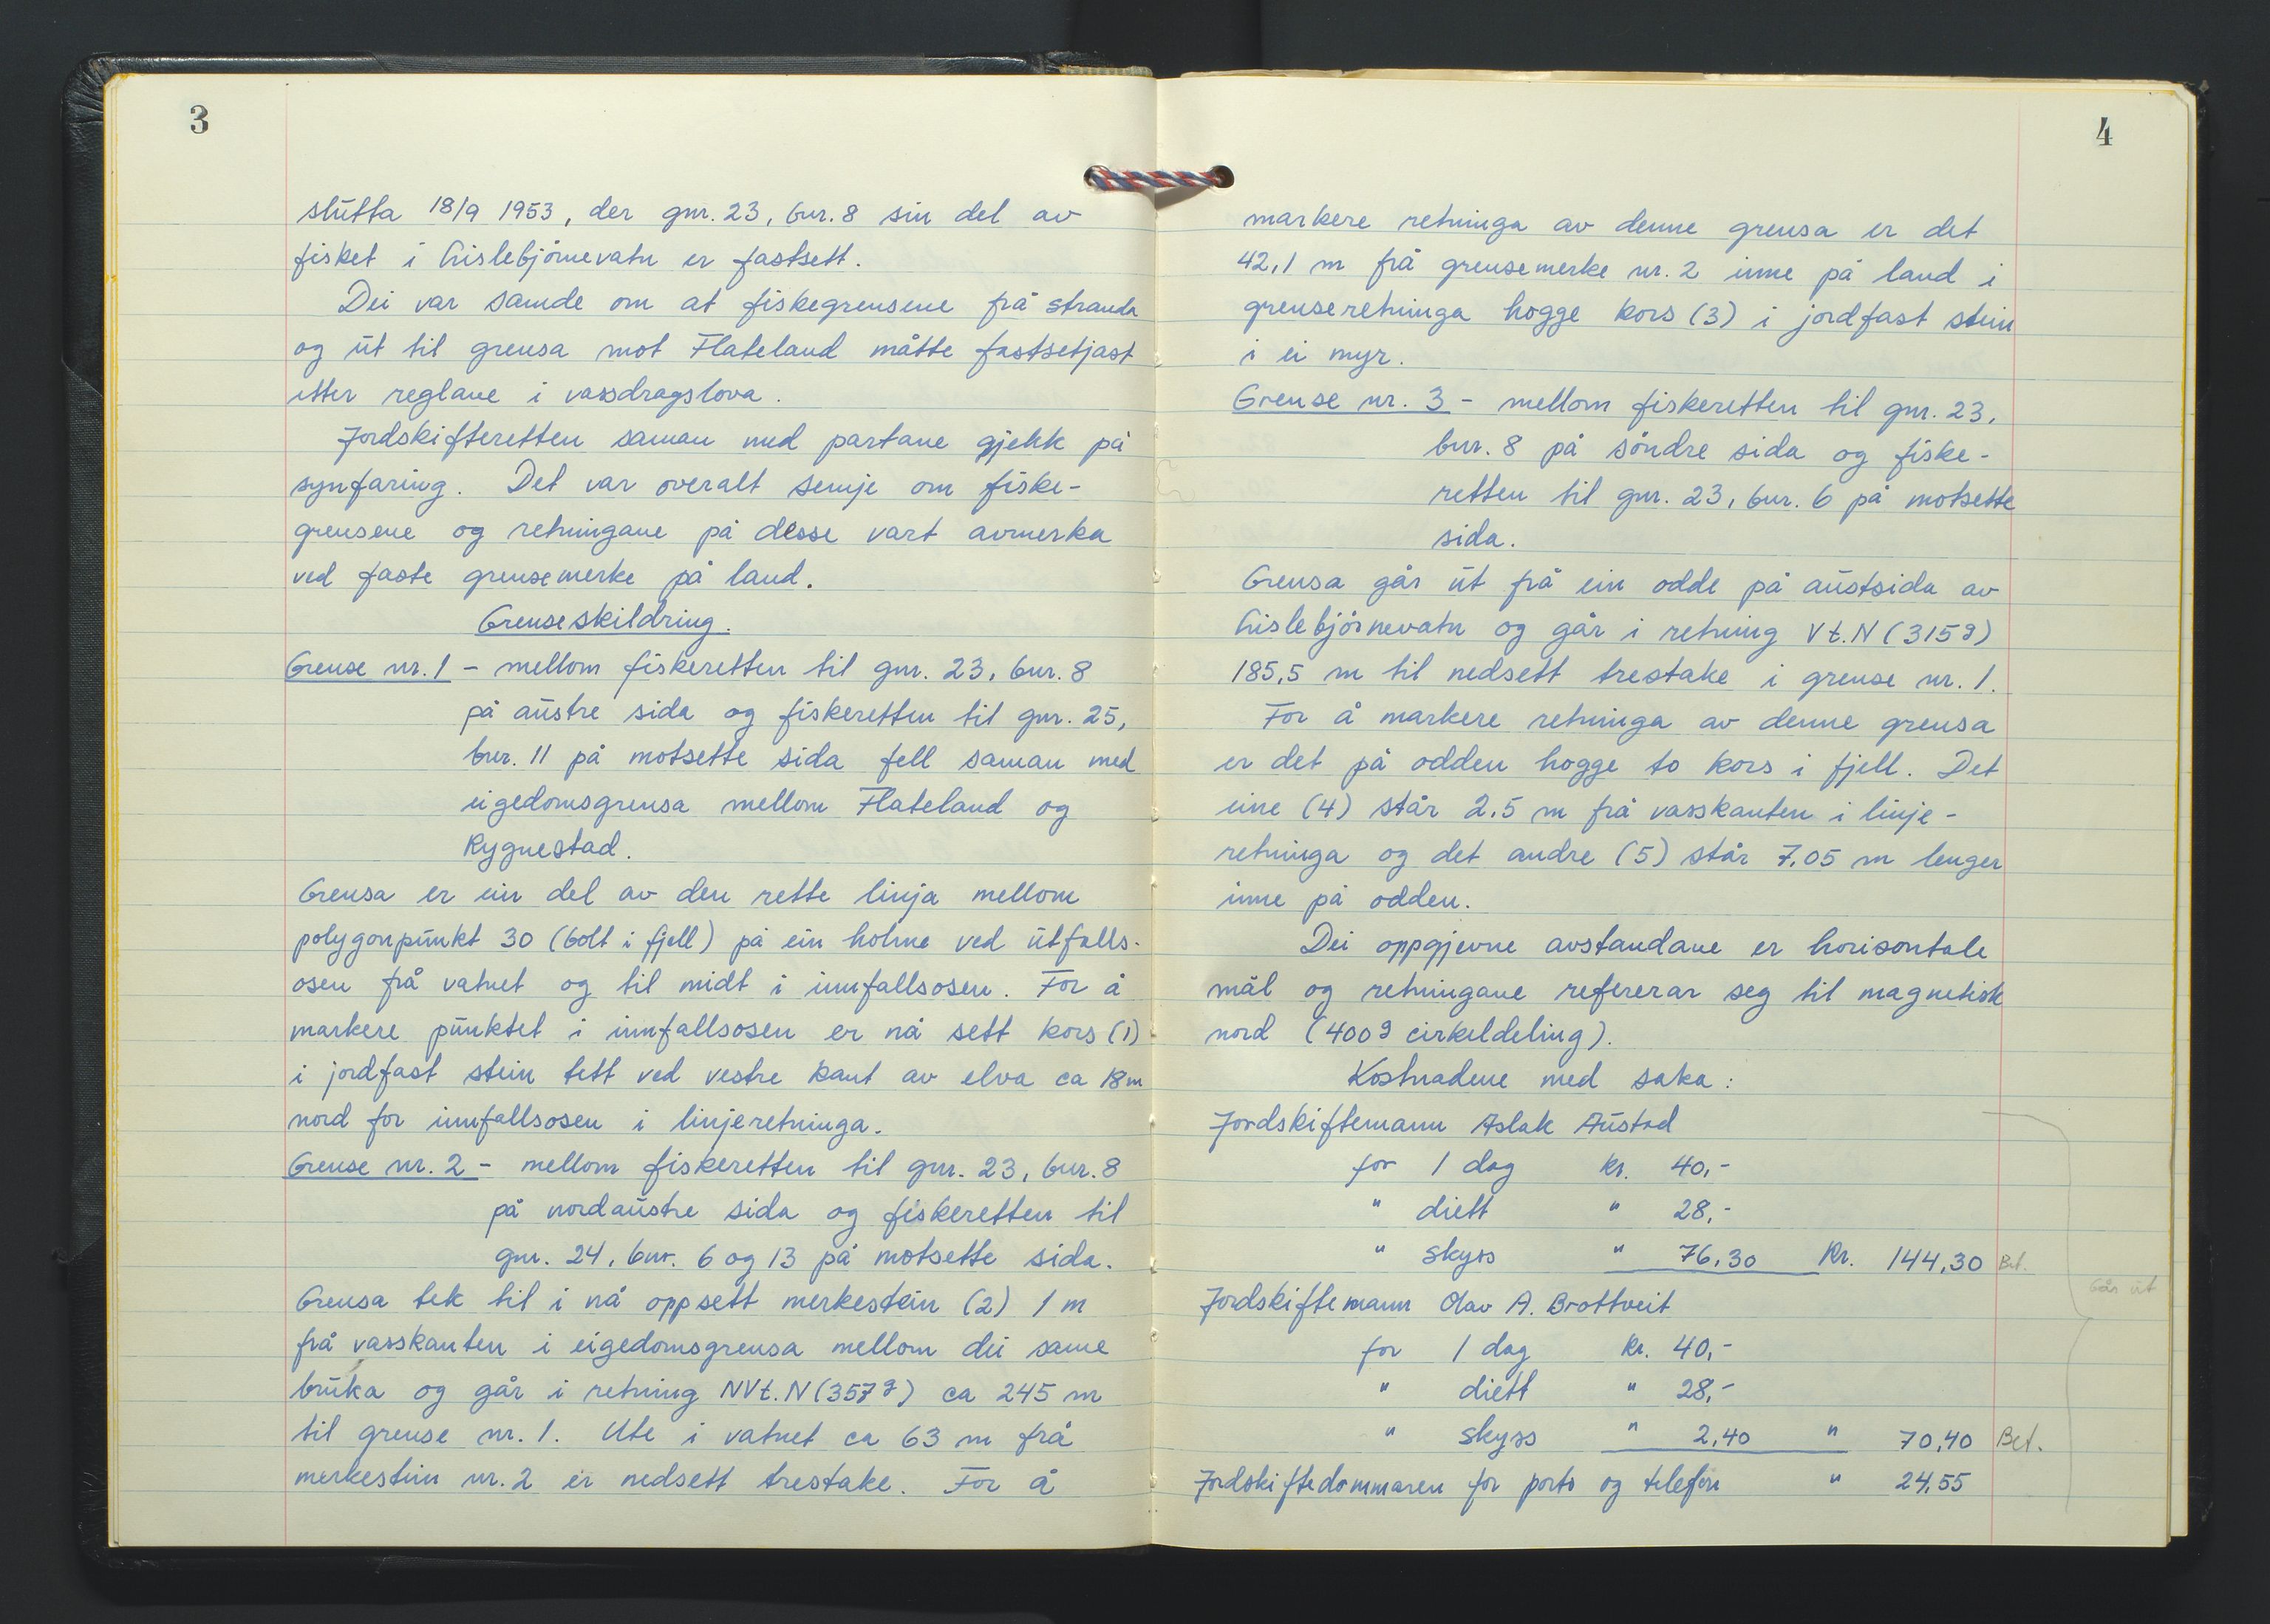 3
slutta 18/9 1953, der gnr. 23, bnr. 8 sin del av
fisket i Gislebjörnevatn er fastsett.
Dei var samde om at fiskegrensene frå stranda
og ut til grensa mot Flateland måtte fastsetjast
etter reglane i vassdragslova.
Jordskifteretten saman med partane gjekk på
synfaring. Det var overalt semje om fiske-
grensene og retningane på desse vart avmerka
ved faste grensemerke på land.
Grenseskildring.
Grense nr. 1 - mellom fiskeretten til gnr. 23, bnr. 8
på austre sida og fiskeretten til gnr. 25,
bnr. 11 på motsette sida fell saman med
eigedomsgrensa mellom Flateland og
Rygnestad.
Grensa er ein del av den rette linja mellom
polygonpunkt 30 (bolt i fjell) på ein holme ved utfalls-
osen frå vatnet og til midt i innfallsosen. For å
markere punktet i innfallsosen er nå sett kors (1)
i jordfast stein tett ved vestre kant av elva ca 18 m
nord for innfallsosen i linjeretninga.
Grense nr. 2 - mellom fiskeretten til gnr. 23, bnr. 8
på nordaustre sida og fiskeretten til
gnr. 24, bnr. 6 og 13 på motsette sida.
Grensa tek til i nå oppsett merkestein (2) 1 m
frå vasskanten i eigedomsgrensa mellom dei same
bruka og går i retning NVt.N (357g) ca 245 m
til grense nr. 1. Ute i vatnet ca 63 m frå
merkestein nr. 2 er nedsett trestake. For å
4
markere retninga av denne grensa er det
42,1 m frå grensemerke nr. 2 inne på land i
grenseretninga hogge kors (3) i jordfast stein
i ei myr.
Grense nr. 3 - mellom fiskeretten til gnr. 23,
bnr. 8 på söndre sida og fiske-
retten til gnr. 23, bnr. 6 på motsette
sida.
Grensa går ut frå ein odde på austsida av
Gislebjörnevatn og går i retning Vt.N (315g)
185,5 m til nedsett trestake i grense nr. 1.
For å markere retninga av denne grensa
er det på odden hogge to kors i fjell. Det
eine (4) står 2,5 m frå vasskanten i linje-
retninga og det andre (5) står 7,05 m lenger
inne på odden.
Dei oppgjevne avstandane er horisontale
mål og retningane refererar seg til magnetisk
nord (400g cirkeldeling).
Kostnadene med saka:
Jordskiftemann Aslak Austad
for 1 dag kr. 40,-
" diett " 28,-
" skyss " 76,30 Kr. 144,30 Bet.
Går ut
Jordskiftemann Olav A. Brottveit
for 1 dag kr. 40,-
" diett " 28,-
" skyss " 2,40 " 70,40 Bet.
Jordskiftedommaren for porto og telefon " 24,55